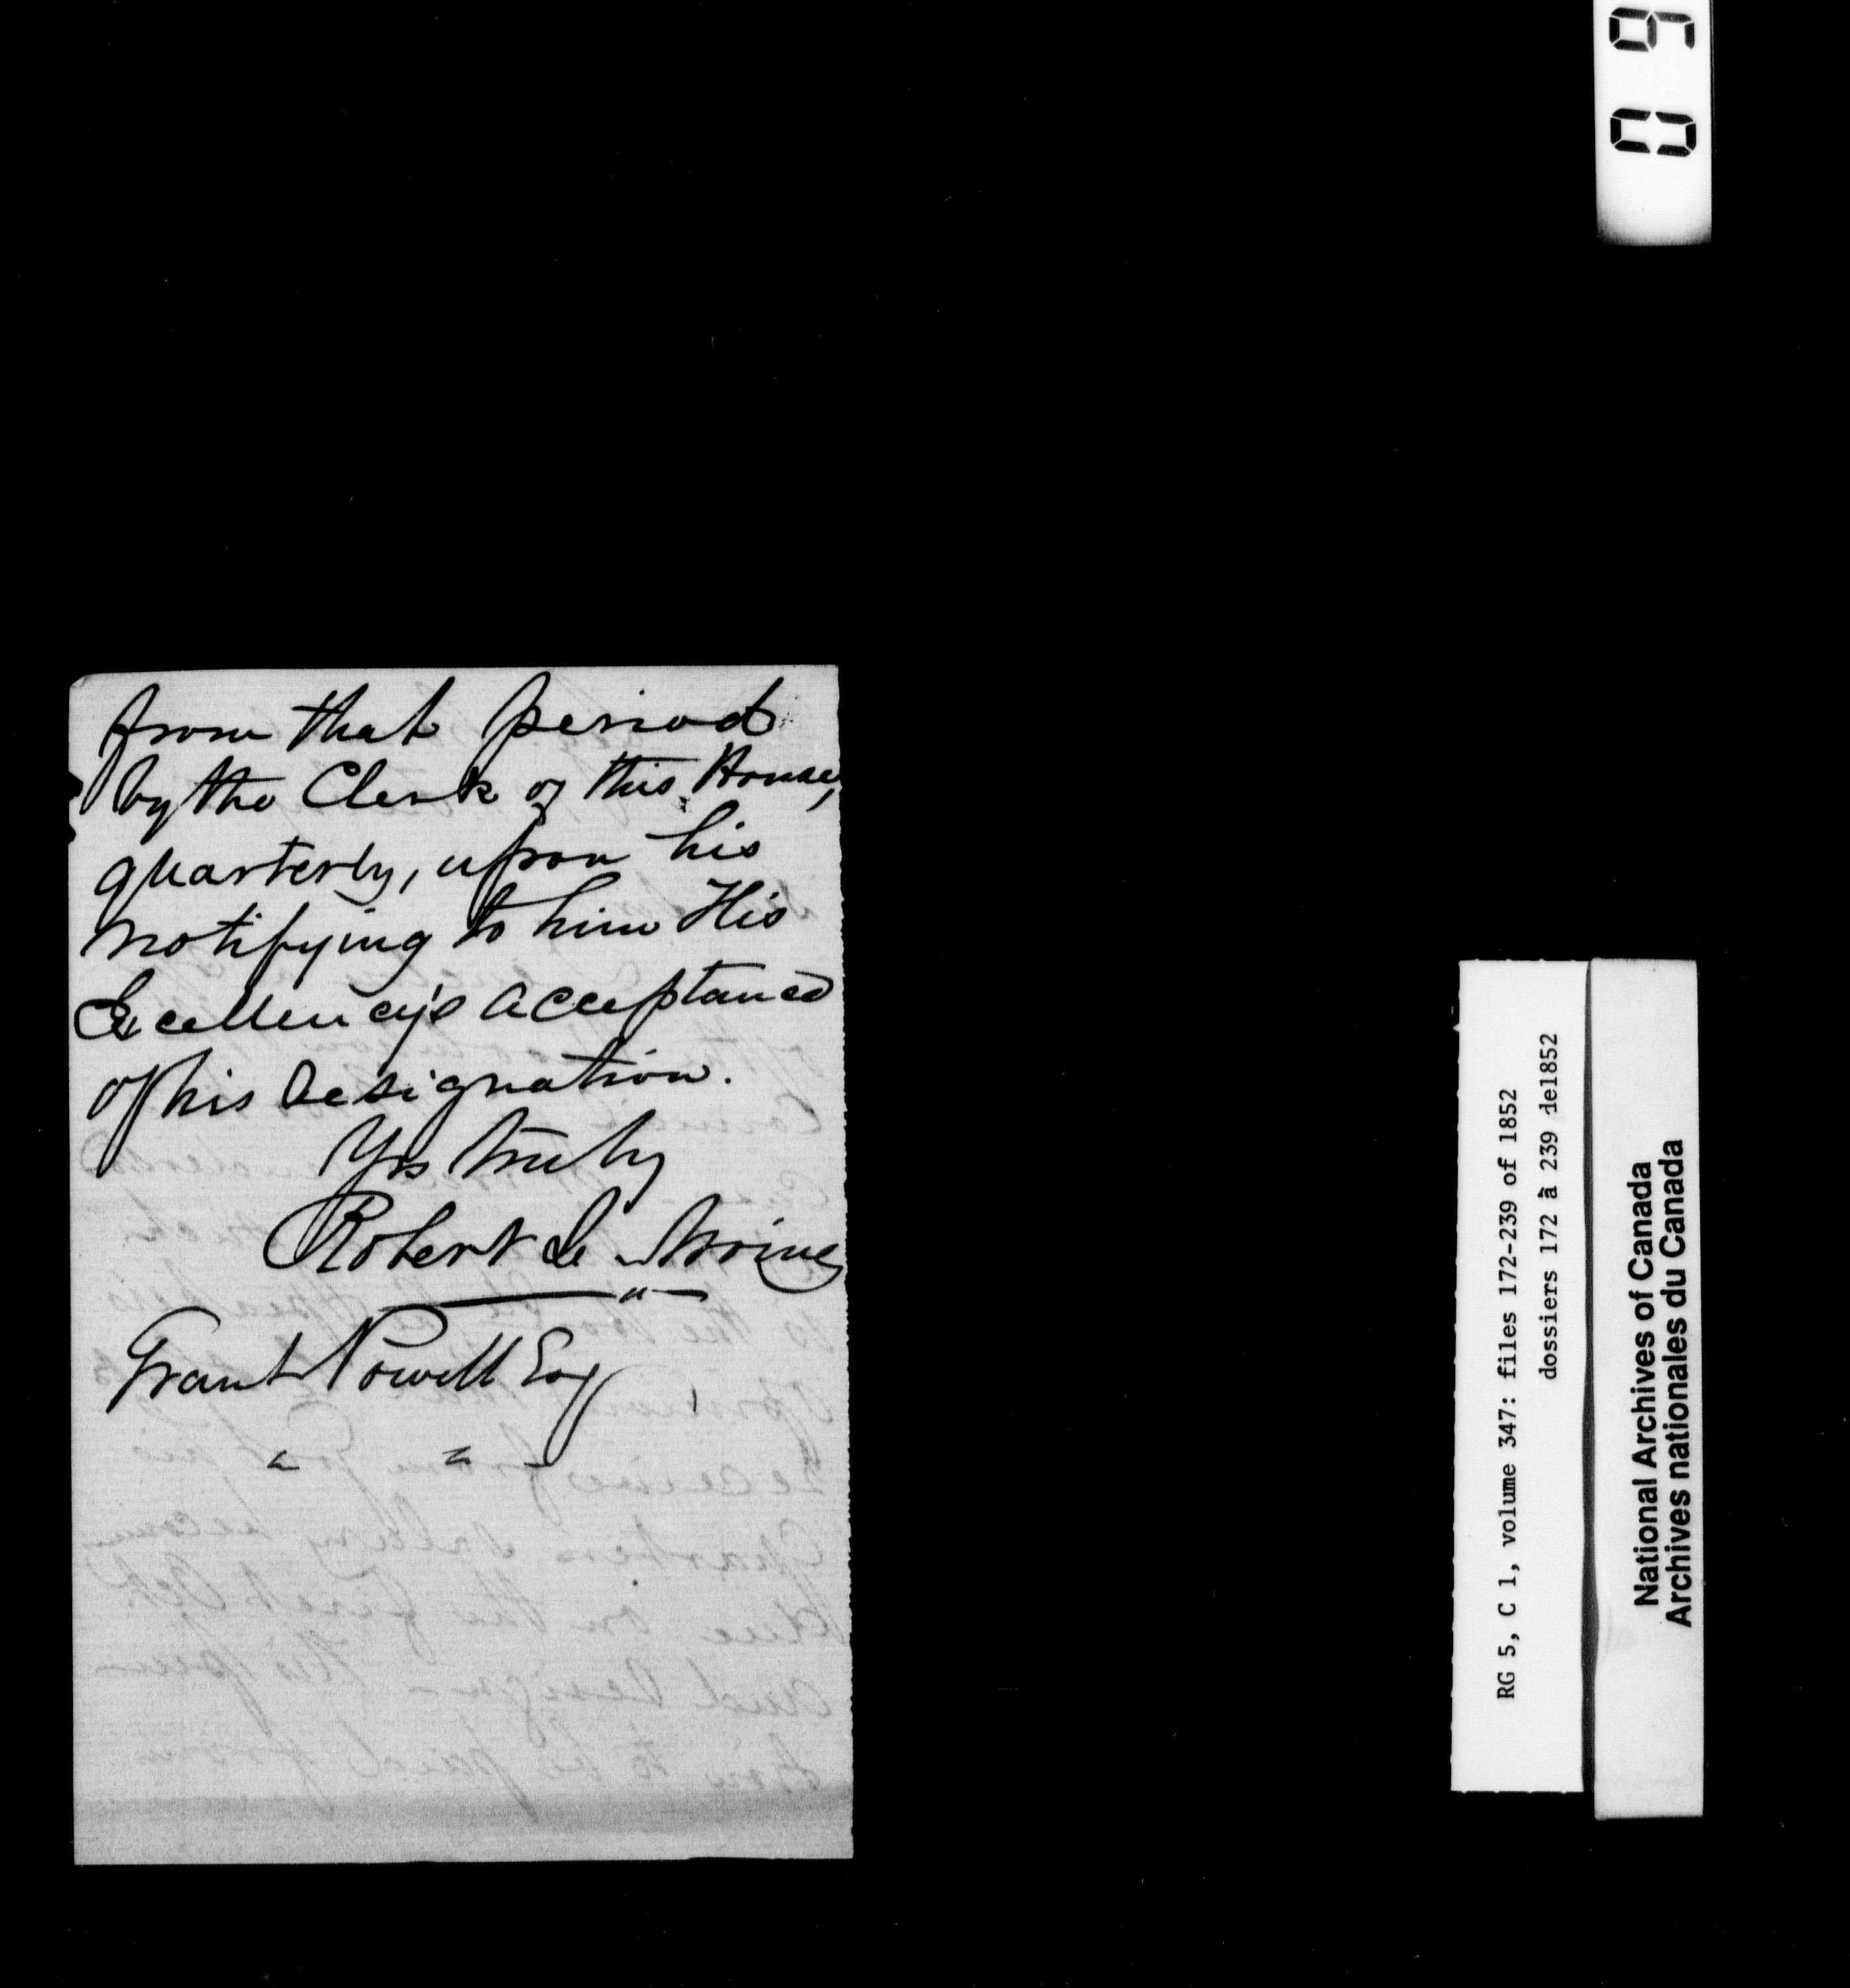 from that period
by the Clerk of this House,
quarterly, upon his
notifying to him His
Excellency's acceptance
of his designation.
Yrs truly
Robert Le Moine
Grant Powell Esq
RG 5, C 1, volume 347: files 172-239 of 1852
dossiers 172 à 239 de1852
National Archives of Canada
Archives nationales du Canada